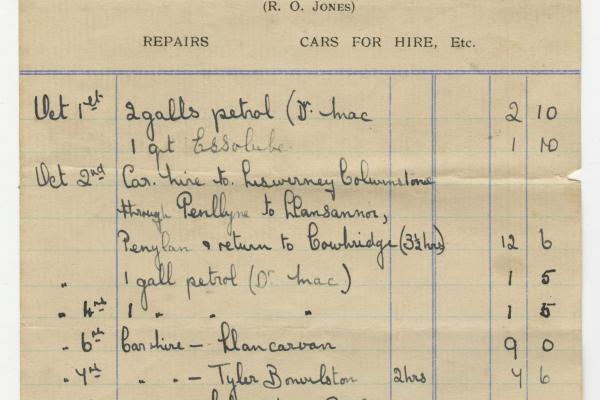 (R. O. JONES)
REPAIRS CARS FOR HIRE, Etc.
Oct 1st 2 galls petrol (Dr. Mac 2 10
1 qt Essolube. 1 10
Oct 2nd Car hire to Liswerney Colwinstone
through Penllyne to Llansannor,
Penylan & return to Cowbridge (3½ hrs) 12 6
" 1 gall petrol (Dr Mac) 1 5
" 4th 1 " " " 1 5
" 6th Car hire — Llancarvan 9 0
" 7th " " — Tyler Bonvilston 2hrs 7 6